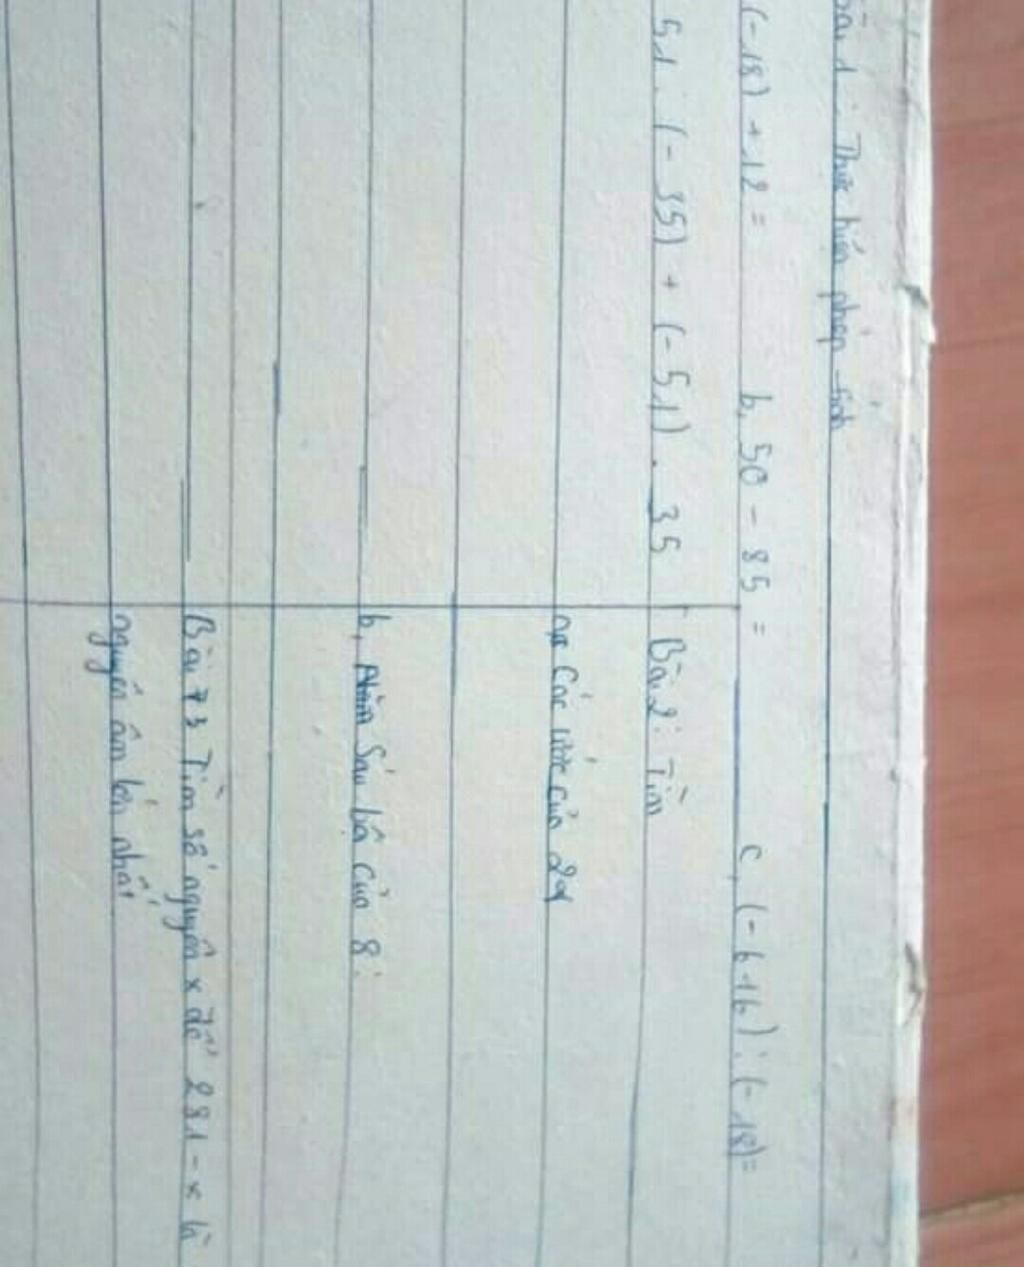 Bài 1: Thực hiện phép tính
(-18) + 12 = b, 50 - 85 = c, (-616) : (-18) =
51 . (-35) + (-51) . 35
Bài 2: Tìm
a, Các ước của 24
b, Năm Sáu bội của 8:
Bài 3 Tìm số nguyên x để 281 - x là
nguyên âm lớn nhất